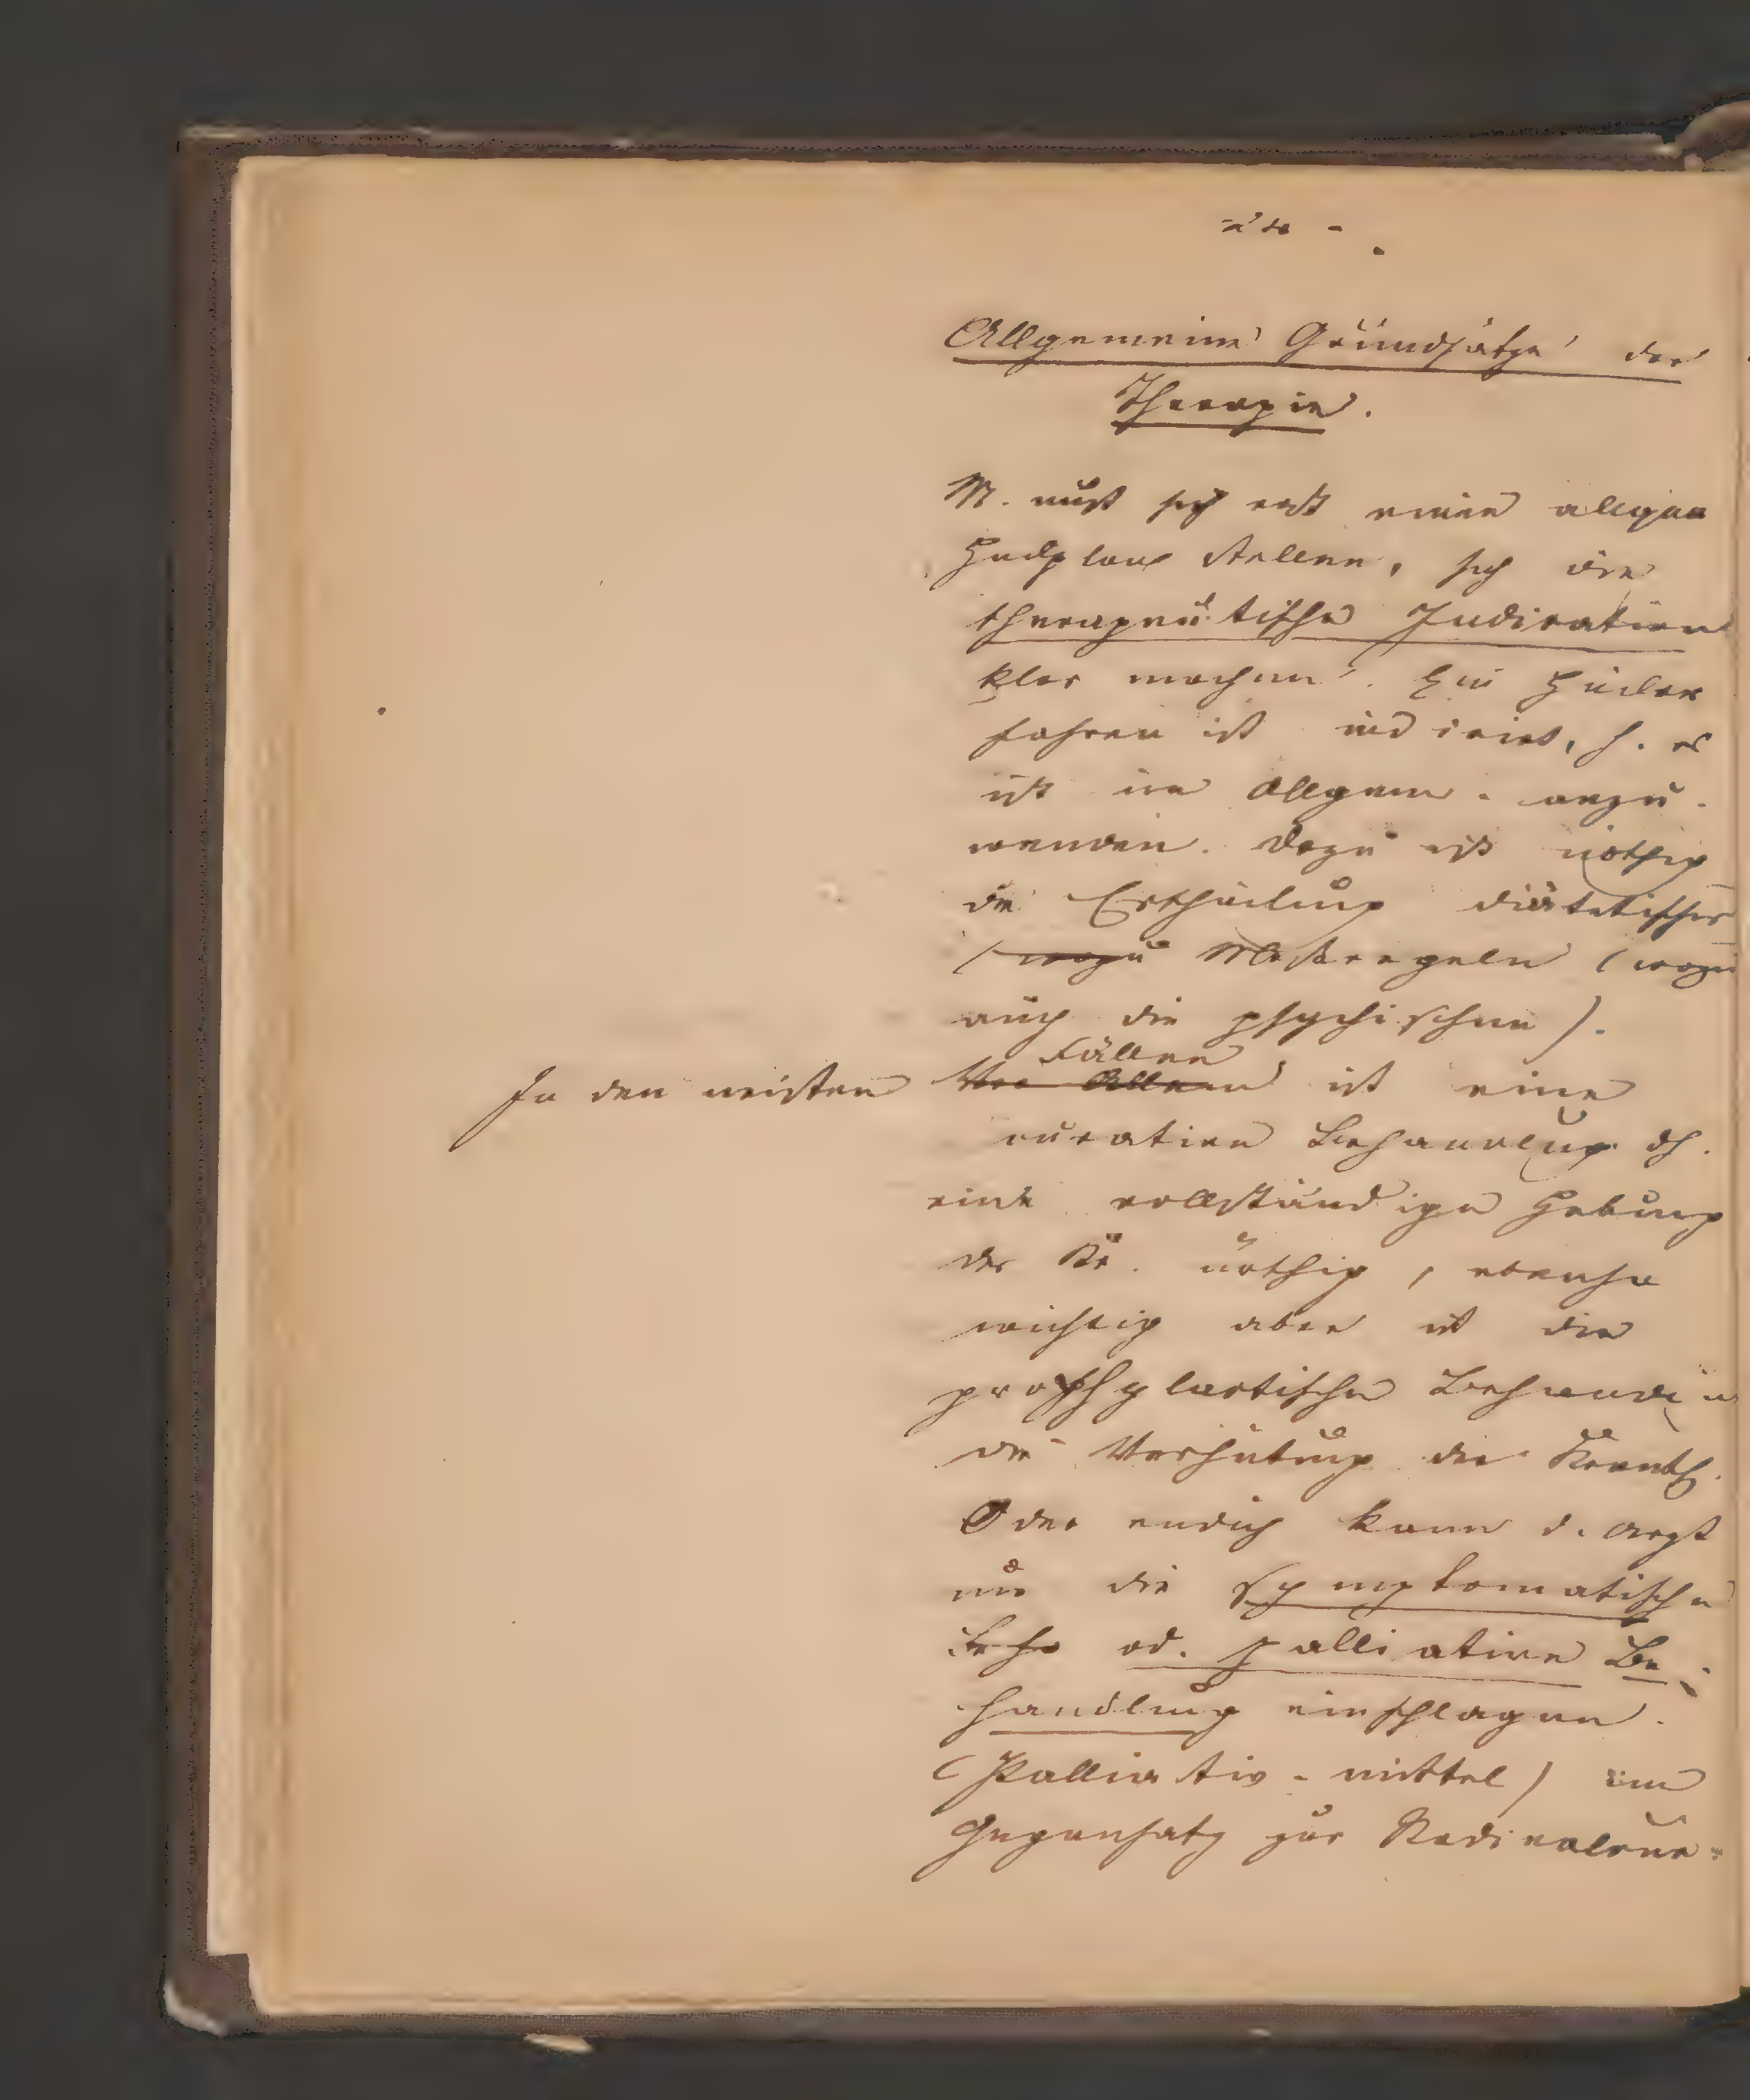 Allgemeine Grundsätze der
Therapie.
M. muß sich erst einen allgem
Heilplan stellen, sich die
therapeutische Indication
klar machen. Ein Heilver
fahren ist indicirt, h. es
ist im Allgem. anzu-
wenden. Dazu ist nöthig
die Ertheilung diätetischer
(wozu Maßregeln (wozu
auch die psychischen).
In den meisten Fällen Vor Allem ist eine
curative Behandlug dh.
eine vollständige Hebung
der Kr. nöthig, ebenso
wichtig aber ist die
prophylactische Behandl
die Verhütung der Krankh.
Oder endlich kann d. Arzt
nur die symptomatische
Beha od. palliative Be-
handlung einschlagen.
(Palliativ-mittel) im
Gegensatz zur Radicalcur